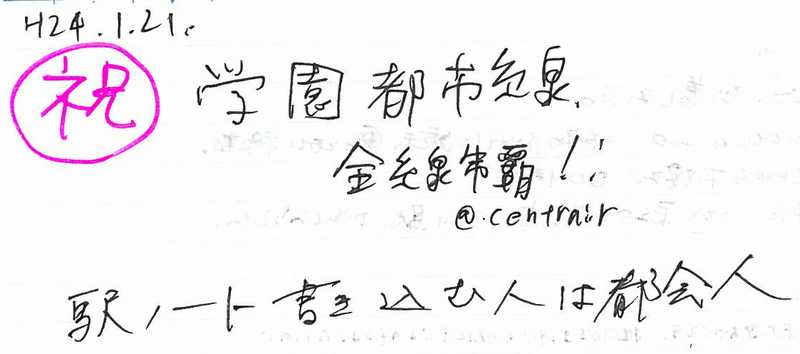 H24.1.21.
祝 学園都市線
全線制覇!!
@.centrair
駅ノート書き込む人は都会人